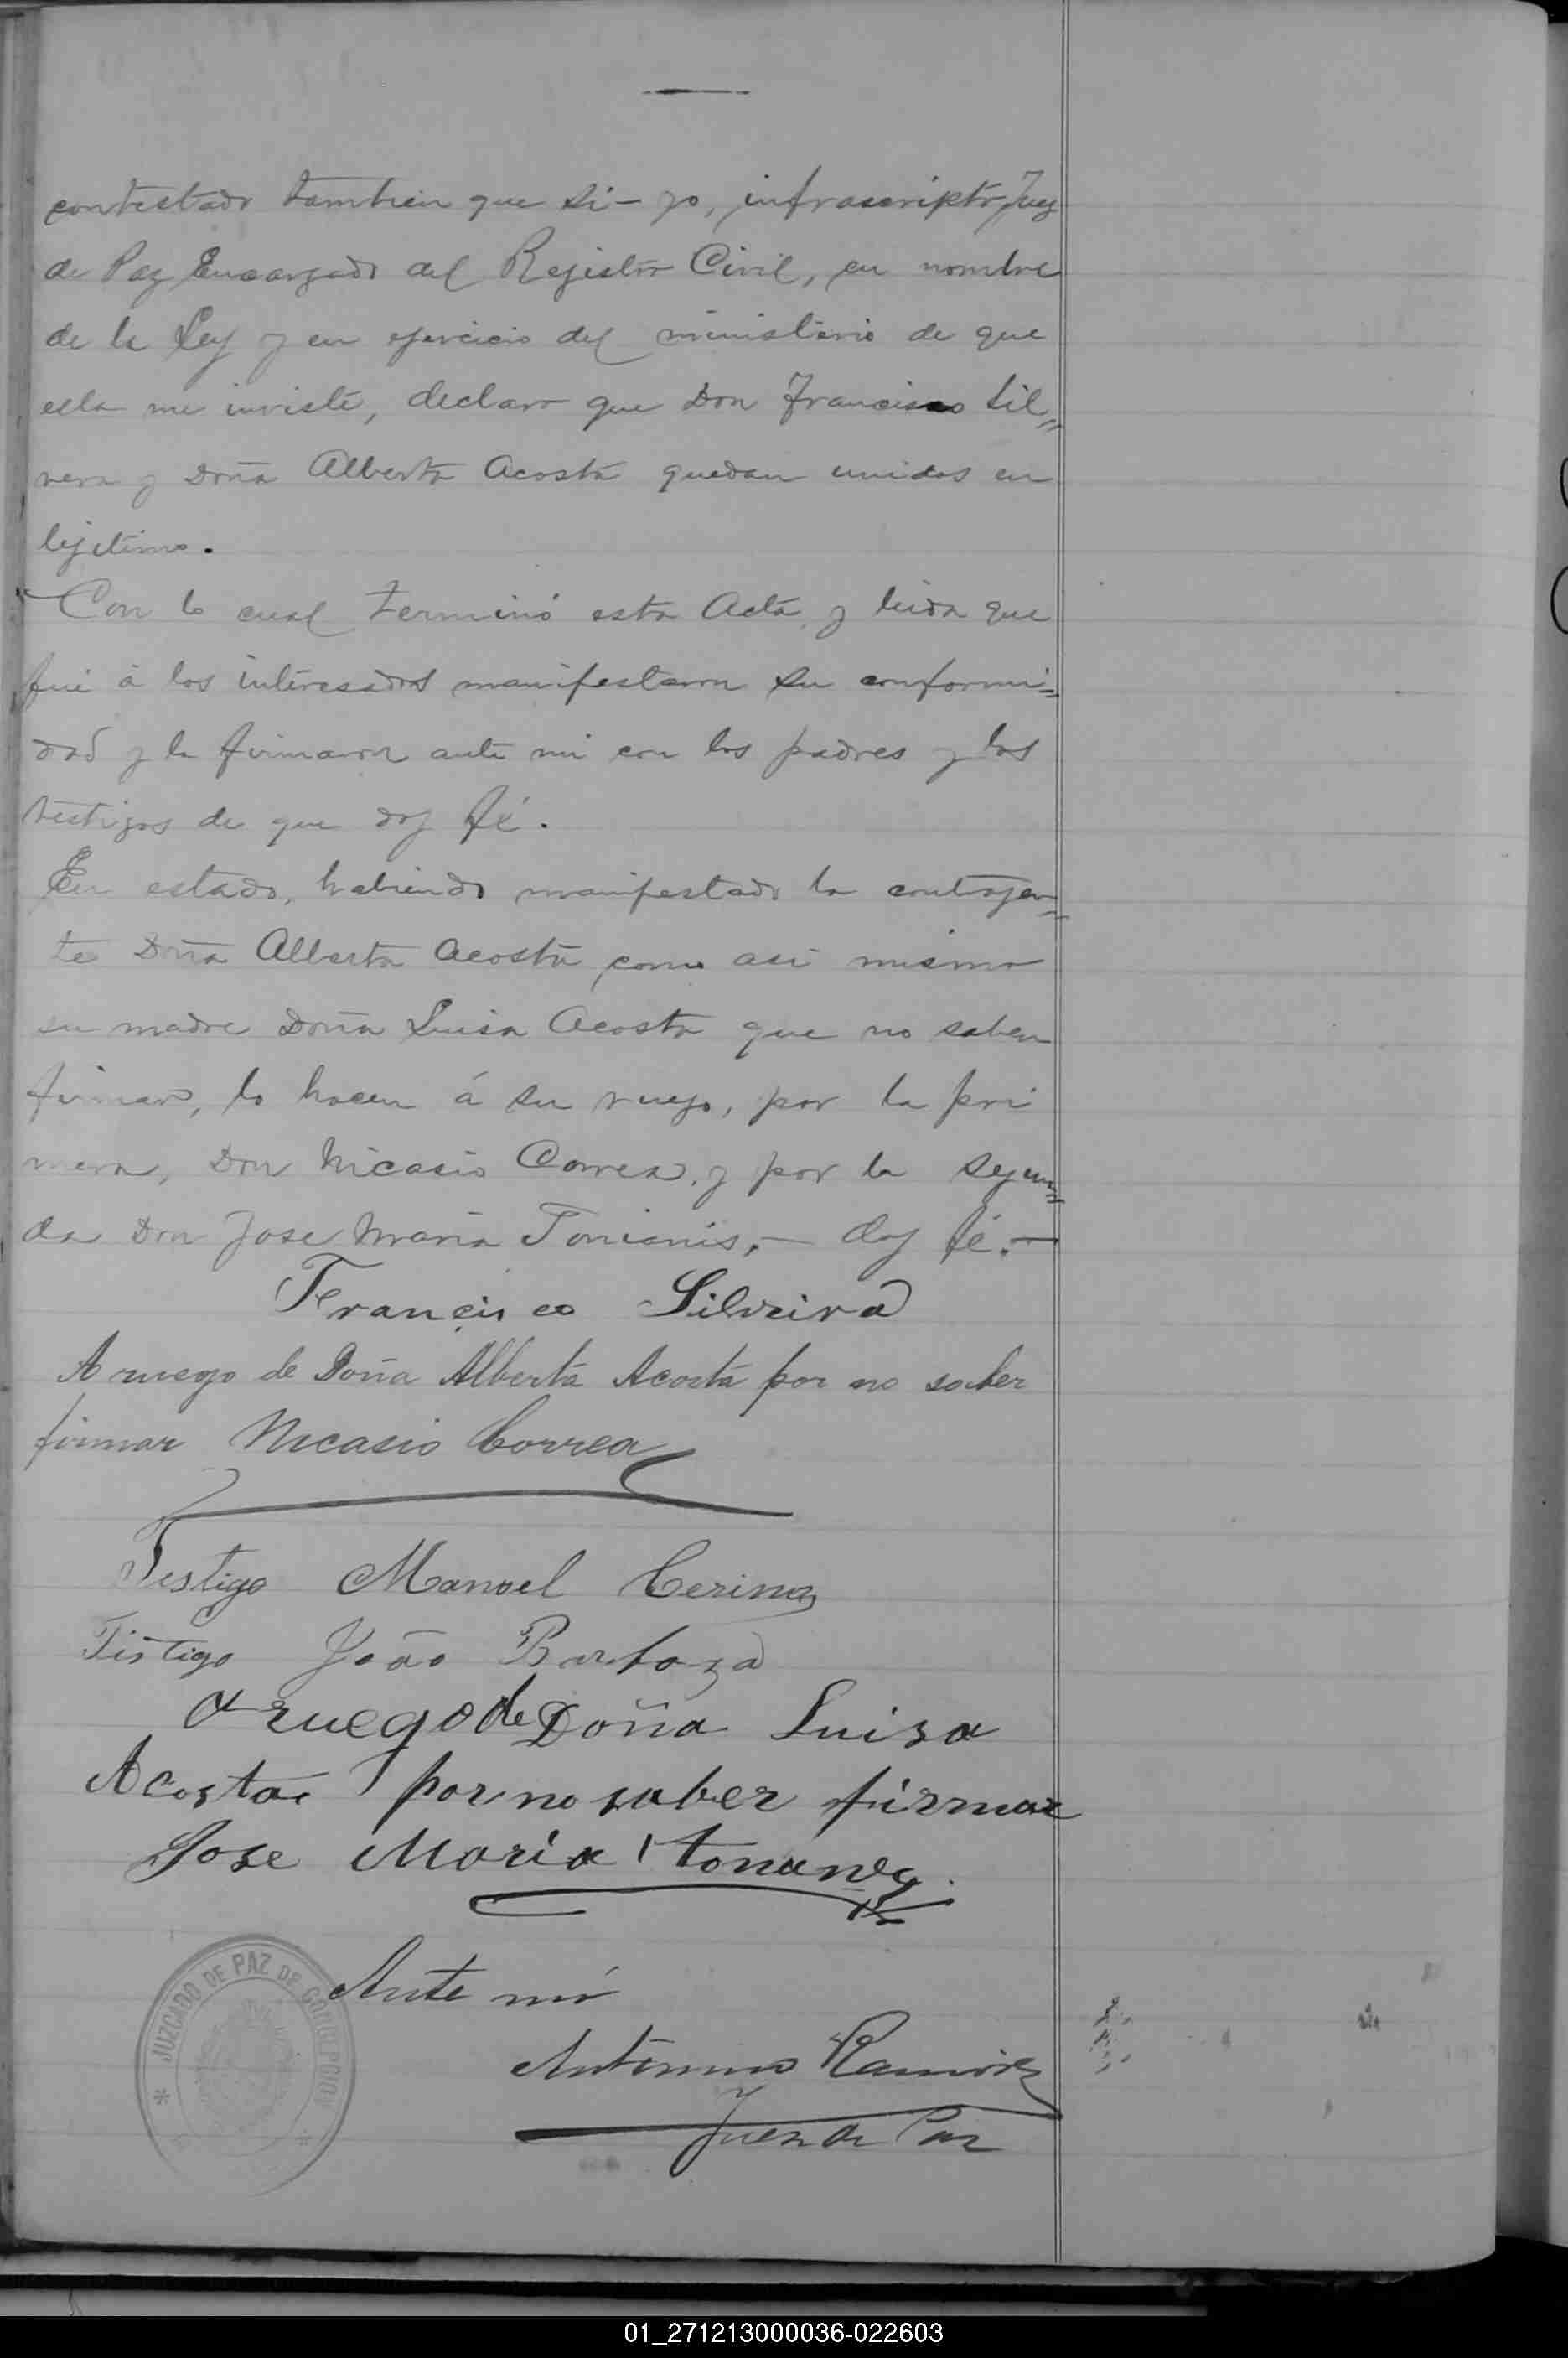 contestado tambien que si – yo, infrascripto Juez
de Paz Encargado del Rejistro Civil, en nombre
de la Ley y en ejercicio del ministerio de que
ella me inviste, declaro que Don Francisco Sil=
vera y Doña Alberta Acosta quedan unidos en
lejitimo.
Con lo cual terminó esta Acta, y leida que
fué á los interesados manifestaron su conformi=
dad y la firmaron ante mi con los padres y los
testigos de que doy fé.
En estado, habiendo manifestado la contrayen=
te Doña Alberta Acosta, como asi mismo
su madre Doña Luisa Acosta que no saben
firmar, lo hacen á su ruego, por la pri
mera, Don Nicasio Correa, y por la segun=
da Don Jose Maria – doy fé. –
Francisco Silveira
A ruego de Doña Alberta Acosta por no saber
firmar Nicasio Correa
Testigo Manoel
Tistigo João Barboza
a ruego de Doña Luisa
Acosta por no saber firmar
Jose Maria
JUZGADO DE PAZ DE CONCEPCION
Ante mi
Antonino Ramirez
Juez de Paz
01_271213000036-022603